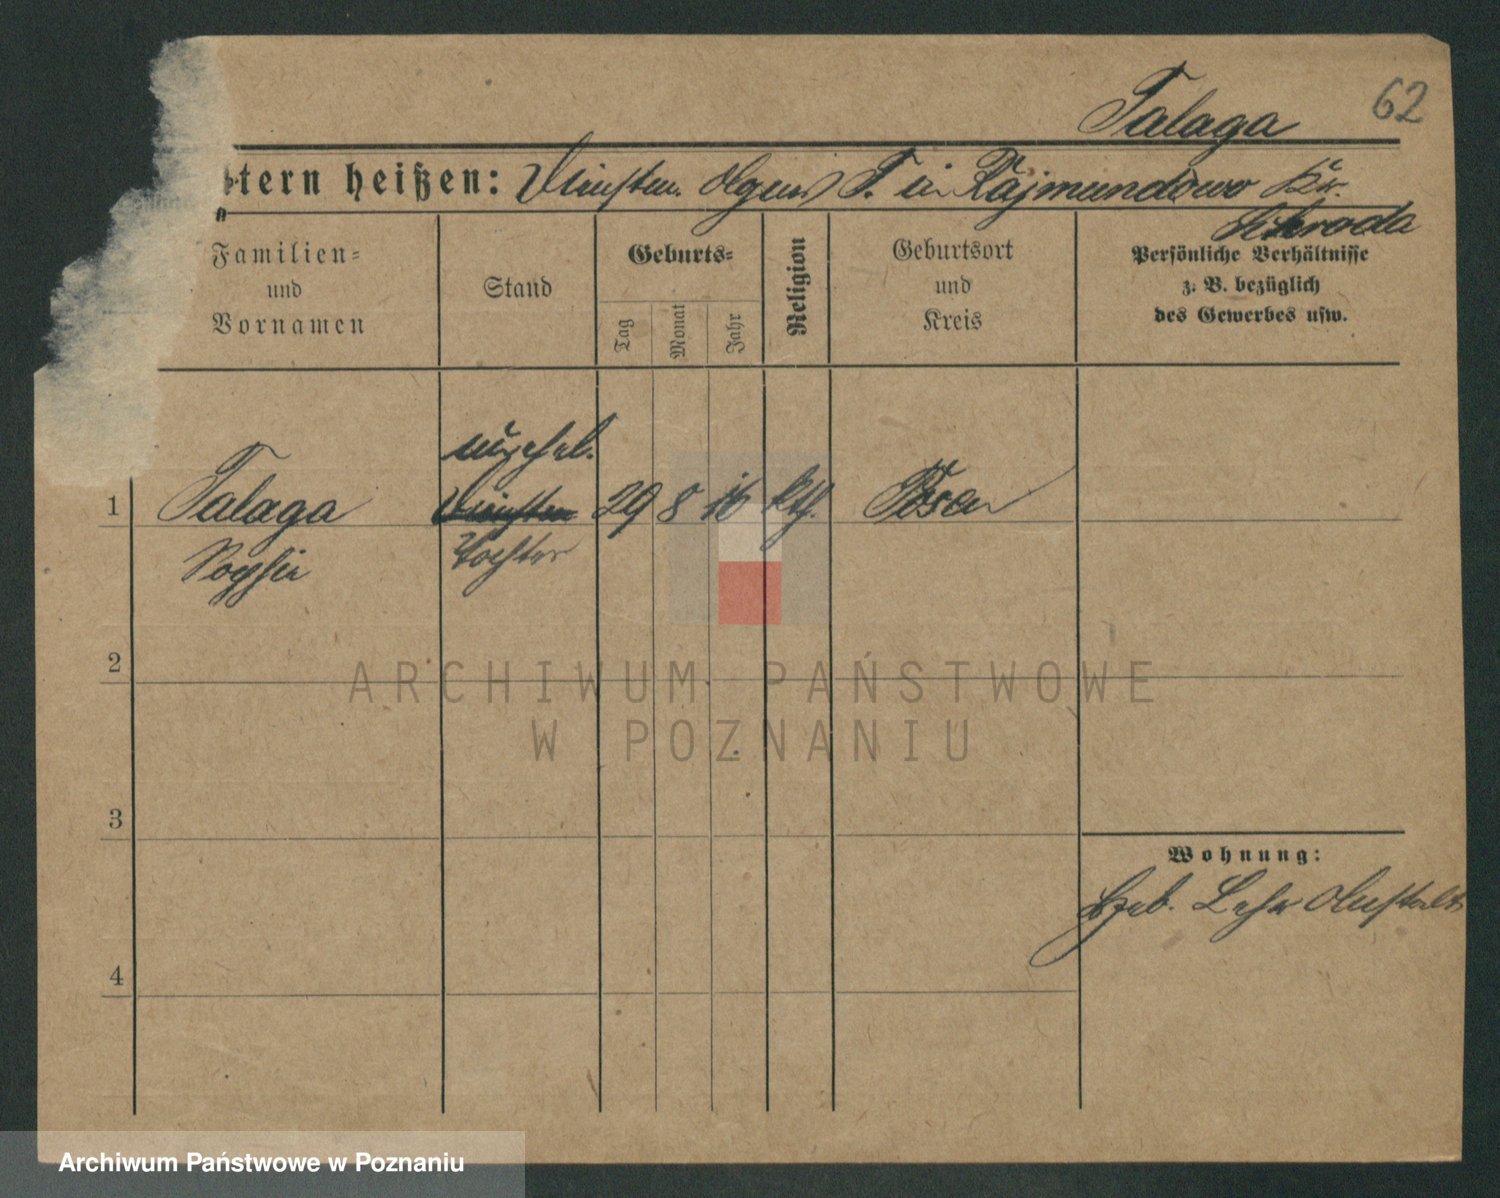 62
Talaga
tern heißen: Agnes T. in Rajmundowo Kr.
Schroda
Familien=
und
Vornamen
Stand
Geburts=
Tag
Monat
Jahr
Religion
Geburtsort
und
Kreis
Persönliche Verhältnisse
z. B. bezüglich
des Gewerbes usw.
unehel.
1 Talaga 29 8 16 kth. Posen
Sophie Tochter
2
ARCHIWUM PAŃSTWOWE
W POZNANIU
3
Wohnung:
Heb-Lehr Anstalt
4
Archiwum Państwowe w Poznaniu